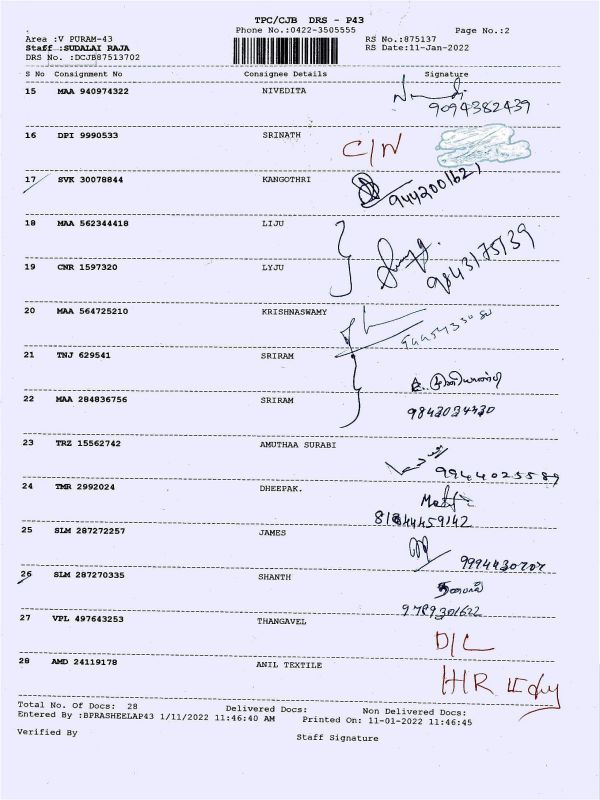 TPC/CJB DRS - P43
Area :V PURAM-43 Phone No.:0422-3505555 Page No.:2
Staff :SUDALAI RAJA RS No.:875137
DRS No. :DCJB87513702 RS Date:11-Jan-2022
S No Consignment No Consignee Details Signature
15 MAA 940974322 NIVEDITA
9094382439
16 DPI 9990533 SRINATH
C/N
17 SVK 30078844 KANGOTHRI
9442001621
18 MAA 562344418 LIJU
9843175139
19 CNR 1597320 LYJU
20 MAA 564725210 KRISHNASWAMY
21 TNJ 629541 SRIRAM
22 MAA 284836756 SRIRAM
9843034430
23 TRZ 15562742 AMUTHAA SURABI
9944025589
24 TMR 2992024 DHEEPAK.
25 SLM 287272257 JAMES
9994430707
26 SLM 287270335 SHANTH
9789301622
27 VPL 497643253 THANGAVEL
D/L
28 AMD 24119178 ANIL TEXTILE
HR
Total No. Of Docs: 28 Delivered Docs: Non Delivered Docs:
Entered By :BPRASHEELAP43 1/11/2022 11:46:40 AM Printed On: 11-01-2022 11:46:45
Verified By Staff Signature